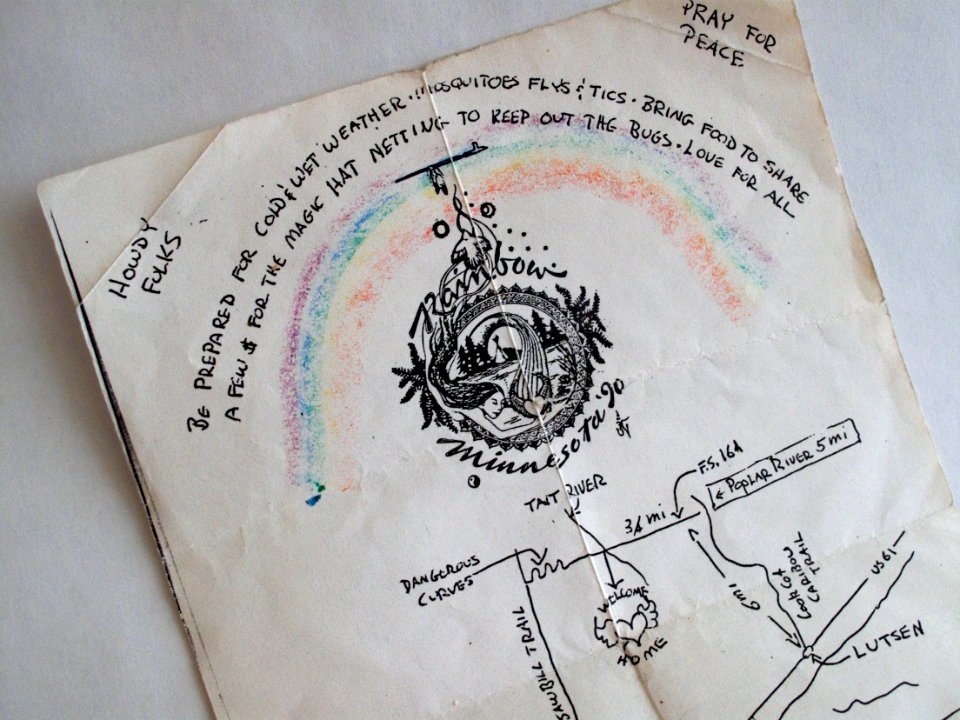 PRAY FOR
PEACE
HOWDY
FOLKS
BE PREPARED FOR COLD & WET WEATHER · MOSQUITOES FLYS & TICS · BRING FOOD TO SHARE
A FEW $ FOR THE MAGIC HAT NETTING TO KEEP OUT THE BUGS · LOVE FOR ALL
Rainbow
Minnesota '90
TAIT RIVER
F.S. 164
← POPLAR RIVER 5 mi
3/4 mi
DANGEROUS
CURVES
6 mi
COOK CO.
CARIBOU
TRAIL
US 61
WELCOME
HOME
LUTSEN
SAWBILL TRAIL